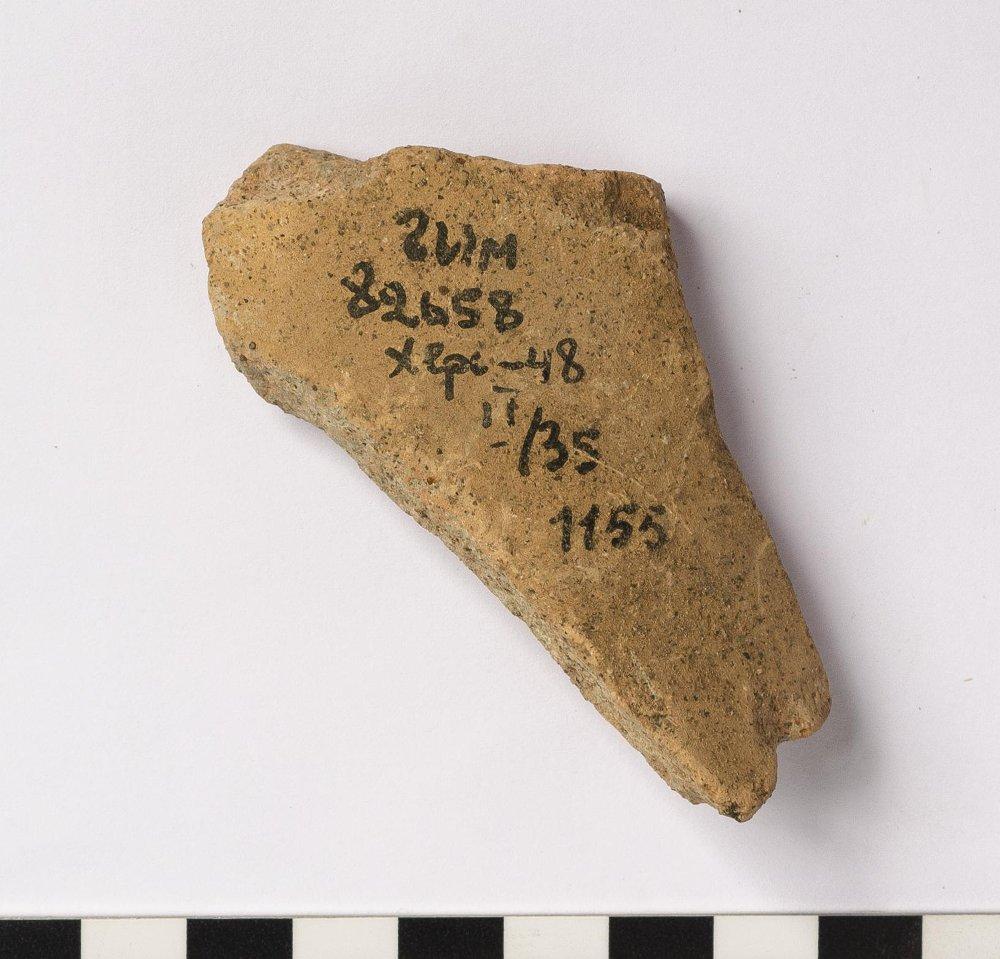 ГИМ
82658
Херс-48
II/35
1155